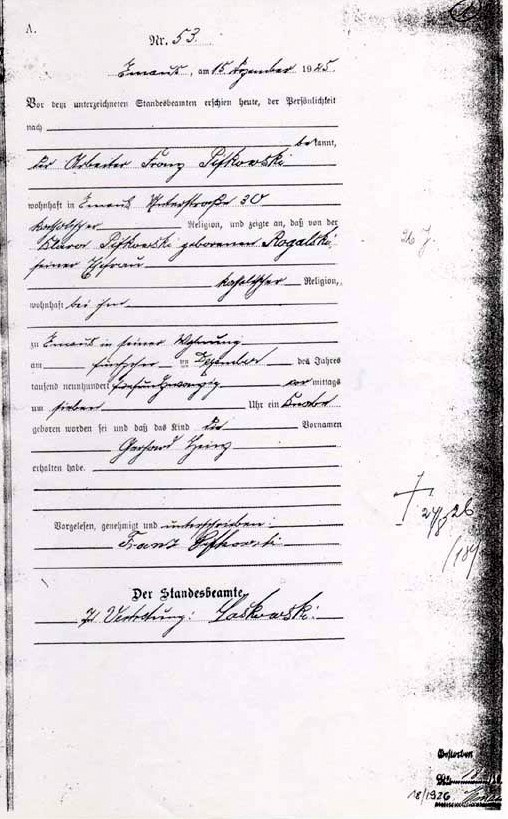 A.
Nr. 53.
Emaus, am 15 Dezember 1925.
Vor dem unterzeichneten Standesbeamten erschien heute, der Persönlichkeit
nach
bekannt,
der Arbeiter Franz
wohnhaft in Emaus Unterstraße 30
katholischer Religion, und zeigte an, daß von der
Klara geborenen Rogalski,
seiner Ehefrau
katholischer Religion,
wohnhaft bei ihm
zu Emaus in seiner Wohnung
am Dezember des Jahres
tausend neunhundert fünfundzwanzig vormittags
um sieben Uhr ein Knabe
geboren worden sei und daß das Kind die Vornamen
Gerhard Heinz
erhalten habe.
Vorgelesen, genehmigt und unterschrieben:
Franz
Der Standesbeamte
In Vertretung: Laskowski.
26 J.
† 26
Gestorben
18/1926